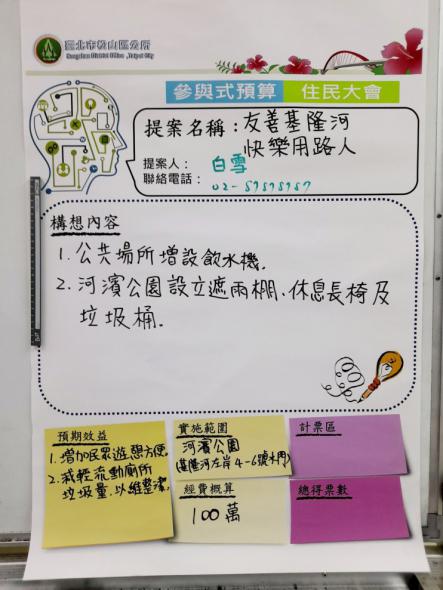 臺北市松山區公所
Songshan District Office ,Taipei City
參與式預算 住民大會
提案名稱：友善基隆河
快樂用路人
提案人：白雪
聯絡電話：02-87878787
構想內容
1. 公共場所增設飲水機.
2. 河濱公園設立遮雨棚、休息長椅及
垃圾桶.
預期效益
1. 增加民眾遊憩方便
2. 減輕流動廁所
垃圾量,以維整潔.
實施範圍
河濱公園
(基隆河左岸4-6號水門)
經費概算
100萬
計票區
總得票數